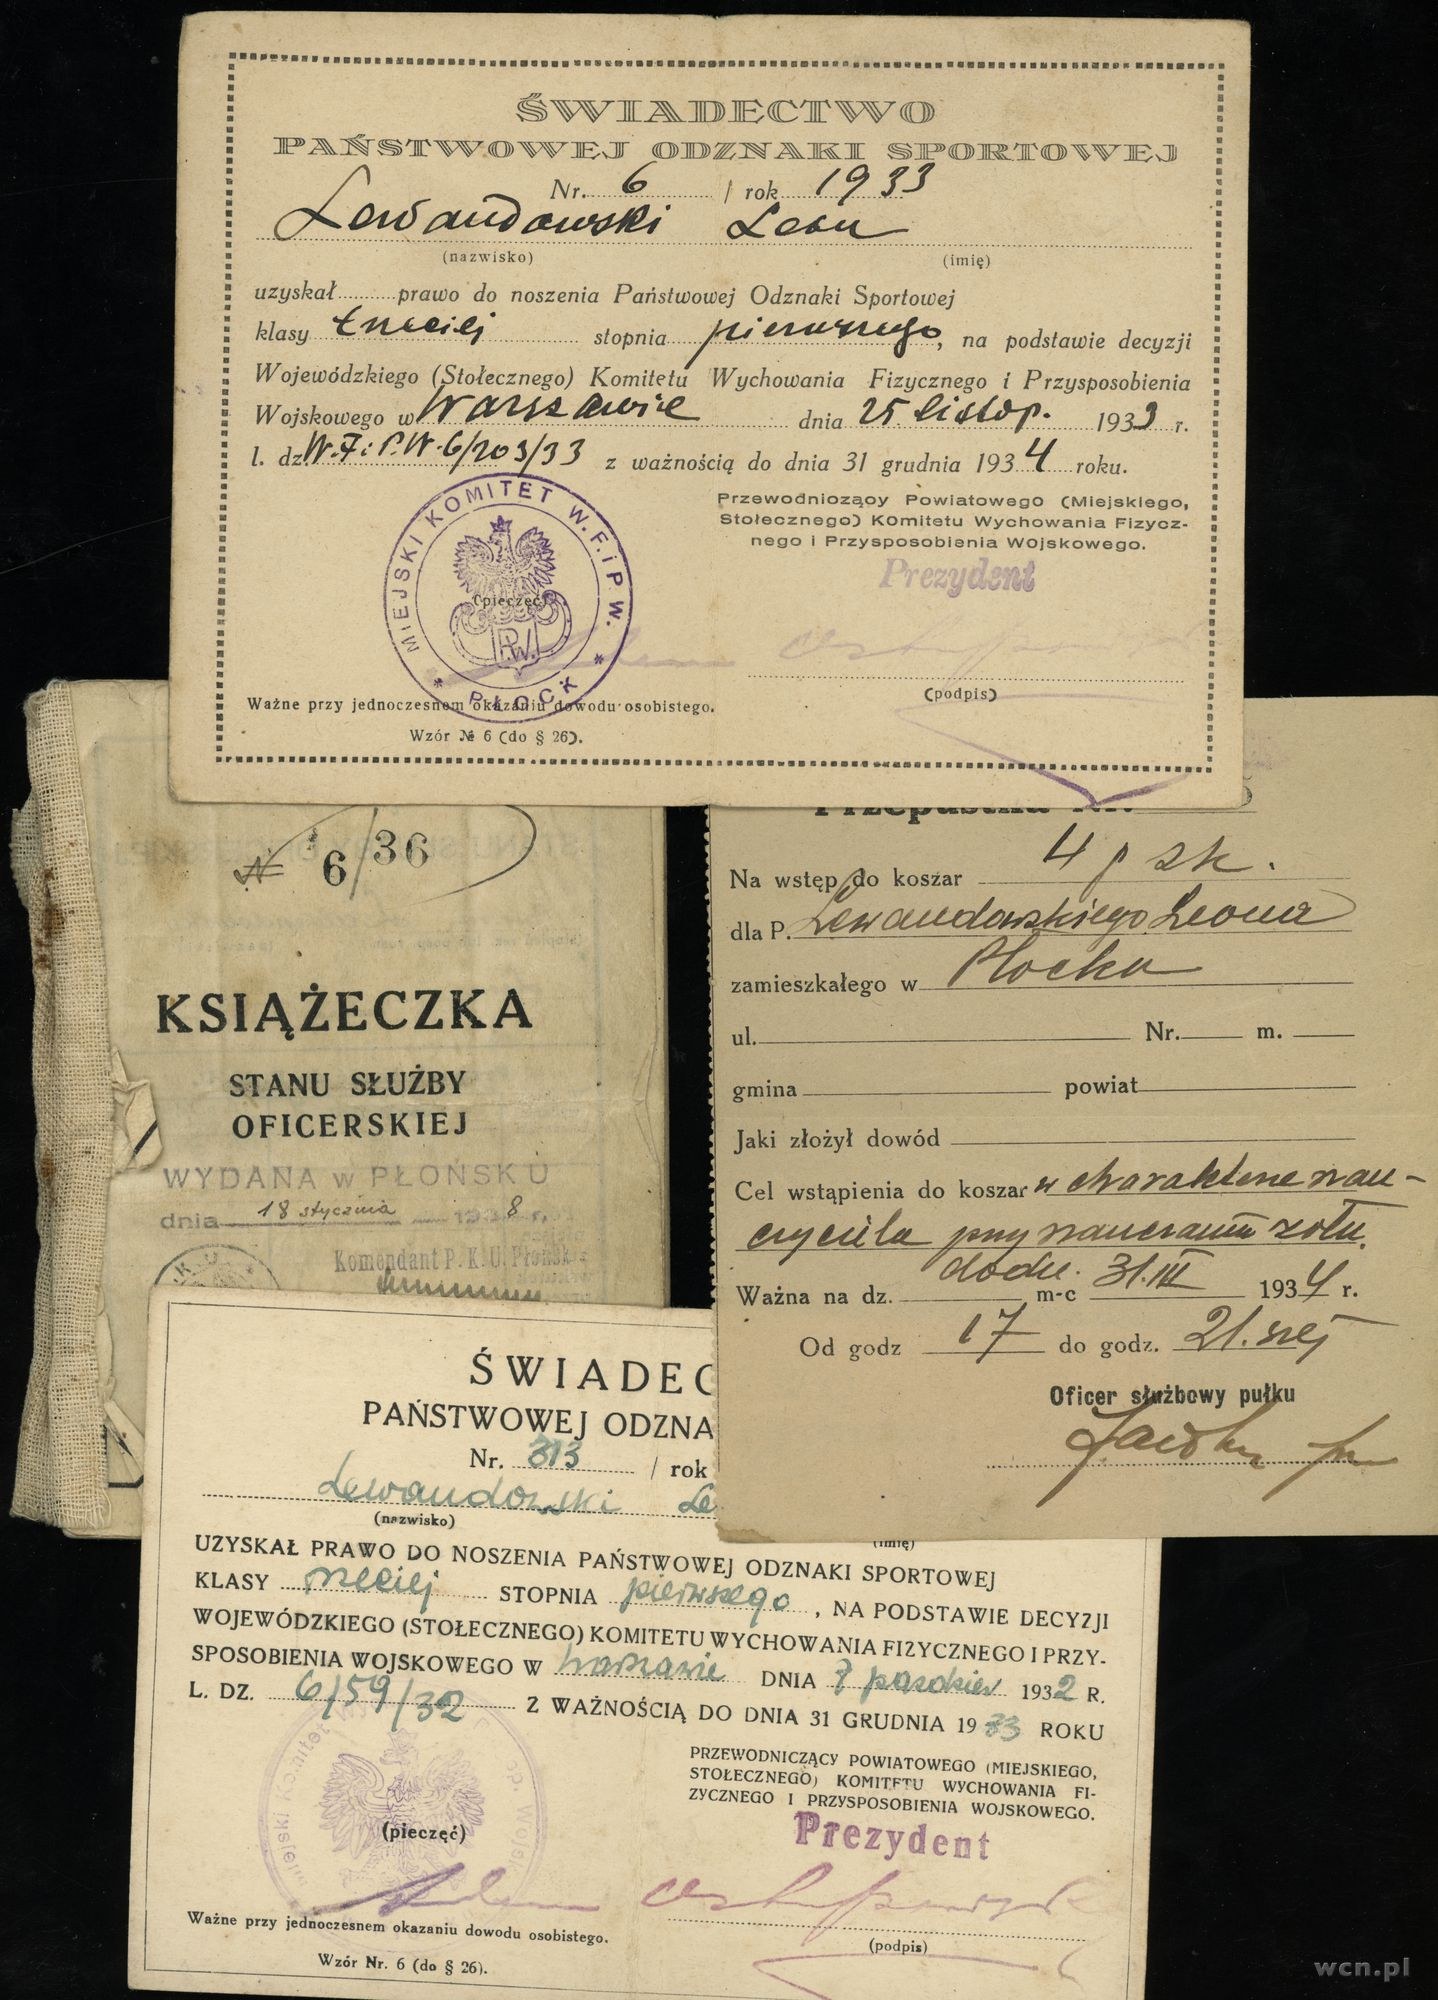 ŚWIADECTWO
PAŃSTWOWEJ ODZNAKI SPORTOWEJ
Nr. 6 / rok 1933
Lewandowski Leon
(nazwisko) (imię)
uzyskał prawo do noszenia Państwowej Odznaki Sportowej
klasy trzeciej stopnia pierwszego, na podstawie decyzji
Wojewódzkiego (Stołecznego) Komitetu Wychowania Fizycznego i Przysposobienia
Wojskowego w Warszawie dnia 25 listop. 1933 r.
l. dz. W.F.i P.W. 6/203/33 z ważnością do dnia 31 grudnia 1934 roku.
Przewodniczący Powiatowego (Miejskiego,
Stołecznego) Komitetu Wychowania Fizycz-
nego i Przysposobienia Wojskowego.
Prezydent
MIEJSKI KOMITET W.F. i P.W.
* PŁOCK *
(pieczęć)
P.W.
(podpis)
Ważne przy jednoczesnem okazaniu dowodu osobistego.
Wzór № 6 (do § 26).
№ 6/36
KSIĄŻECZKA
STANU SŁUŻBY
OFICERSKIEJ
WYDANA w PŁOŃSKU
dnia 18 stycznia 1938 r.
Komendant P. K. U. Płońsk
Przepustka Nr.
Na wstęp do koszar 4 p sk.
dla P. Lewandowskiego Leona
zamieszkałego w Płocku
ul. Nr. m.
gmina powiat
Jaki złożył dowód
Cel wstąpienia do koszar w charakterze nau-
czyciela przy nauczaniu żołn.
Ważna na dz. dodn. m-c 31.III 1934 r.
Od godz 17 do godz. 21.szej
Oficer służbowy pułku
ŚWIADEC
PAŃSTWOWEJ ODZNA
Nr. 313 / rok
Lewandowski Le
(nazwisko) (imię)
UZYSKAŁ PRAWO DO NOSZENIA PAŃSTWOWEJ ODZNAKI SPORTOWEJ
KLASY trzeciej STOPNIA pierwszego, NA PODSTAWIE DECYZJI
WOJEWÓDZKIEGO (STOŁECZNEGO) KOMITETU WYCHOWANIA FIZYCZNEGO I PRZY-
SPOSOBIENIA WOJSKOWEGO W Warszawie DNIA 7 paździer 1932 R.
L. DZ. 6/59/32 Z WAŻNOŚCIĄ DO DNIA 31 GRUDNIA 1933 ROKU
PRZEWODNICZĄCY POWIATOWEGO (MIEJSKIEGO,
STOŁECZNEGO) KOMITETU WYCHOWANIA FI-
ZYCZNEGO I PRZYSPOSOBIENIA WOJSKOWEGO.
Prezydent
(pieczęć)
(podpis)
Ważne przy jednoczesnem okazaniu dowodu osobistego.
Wzór Nr. 6 (do § 26).
wcn.pl